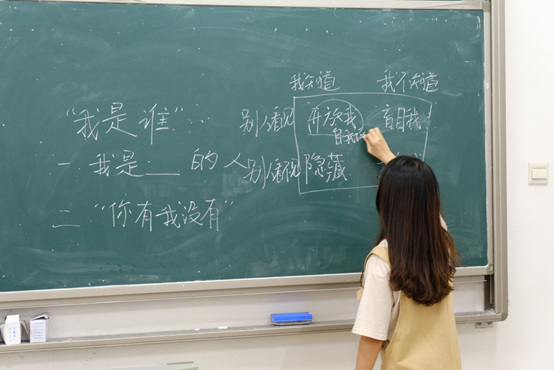 我知道 我不知道
"我是谁":
别人看见 开放我 盲目我
自我
一 我是___的人
别人看 隐藏
二 "你有我没有"